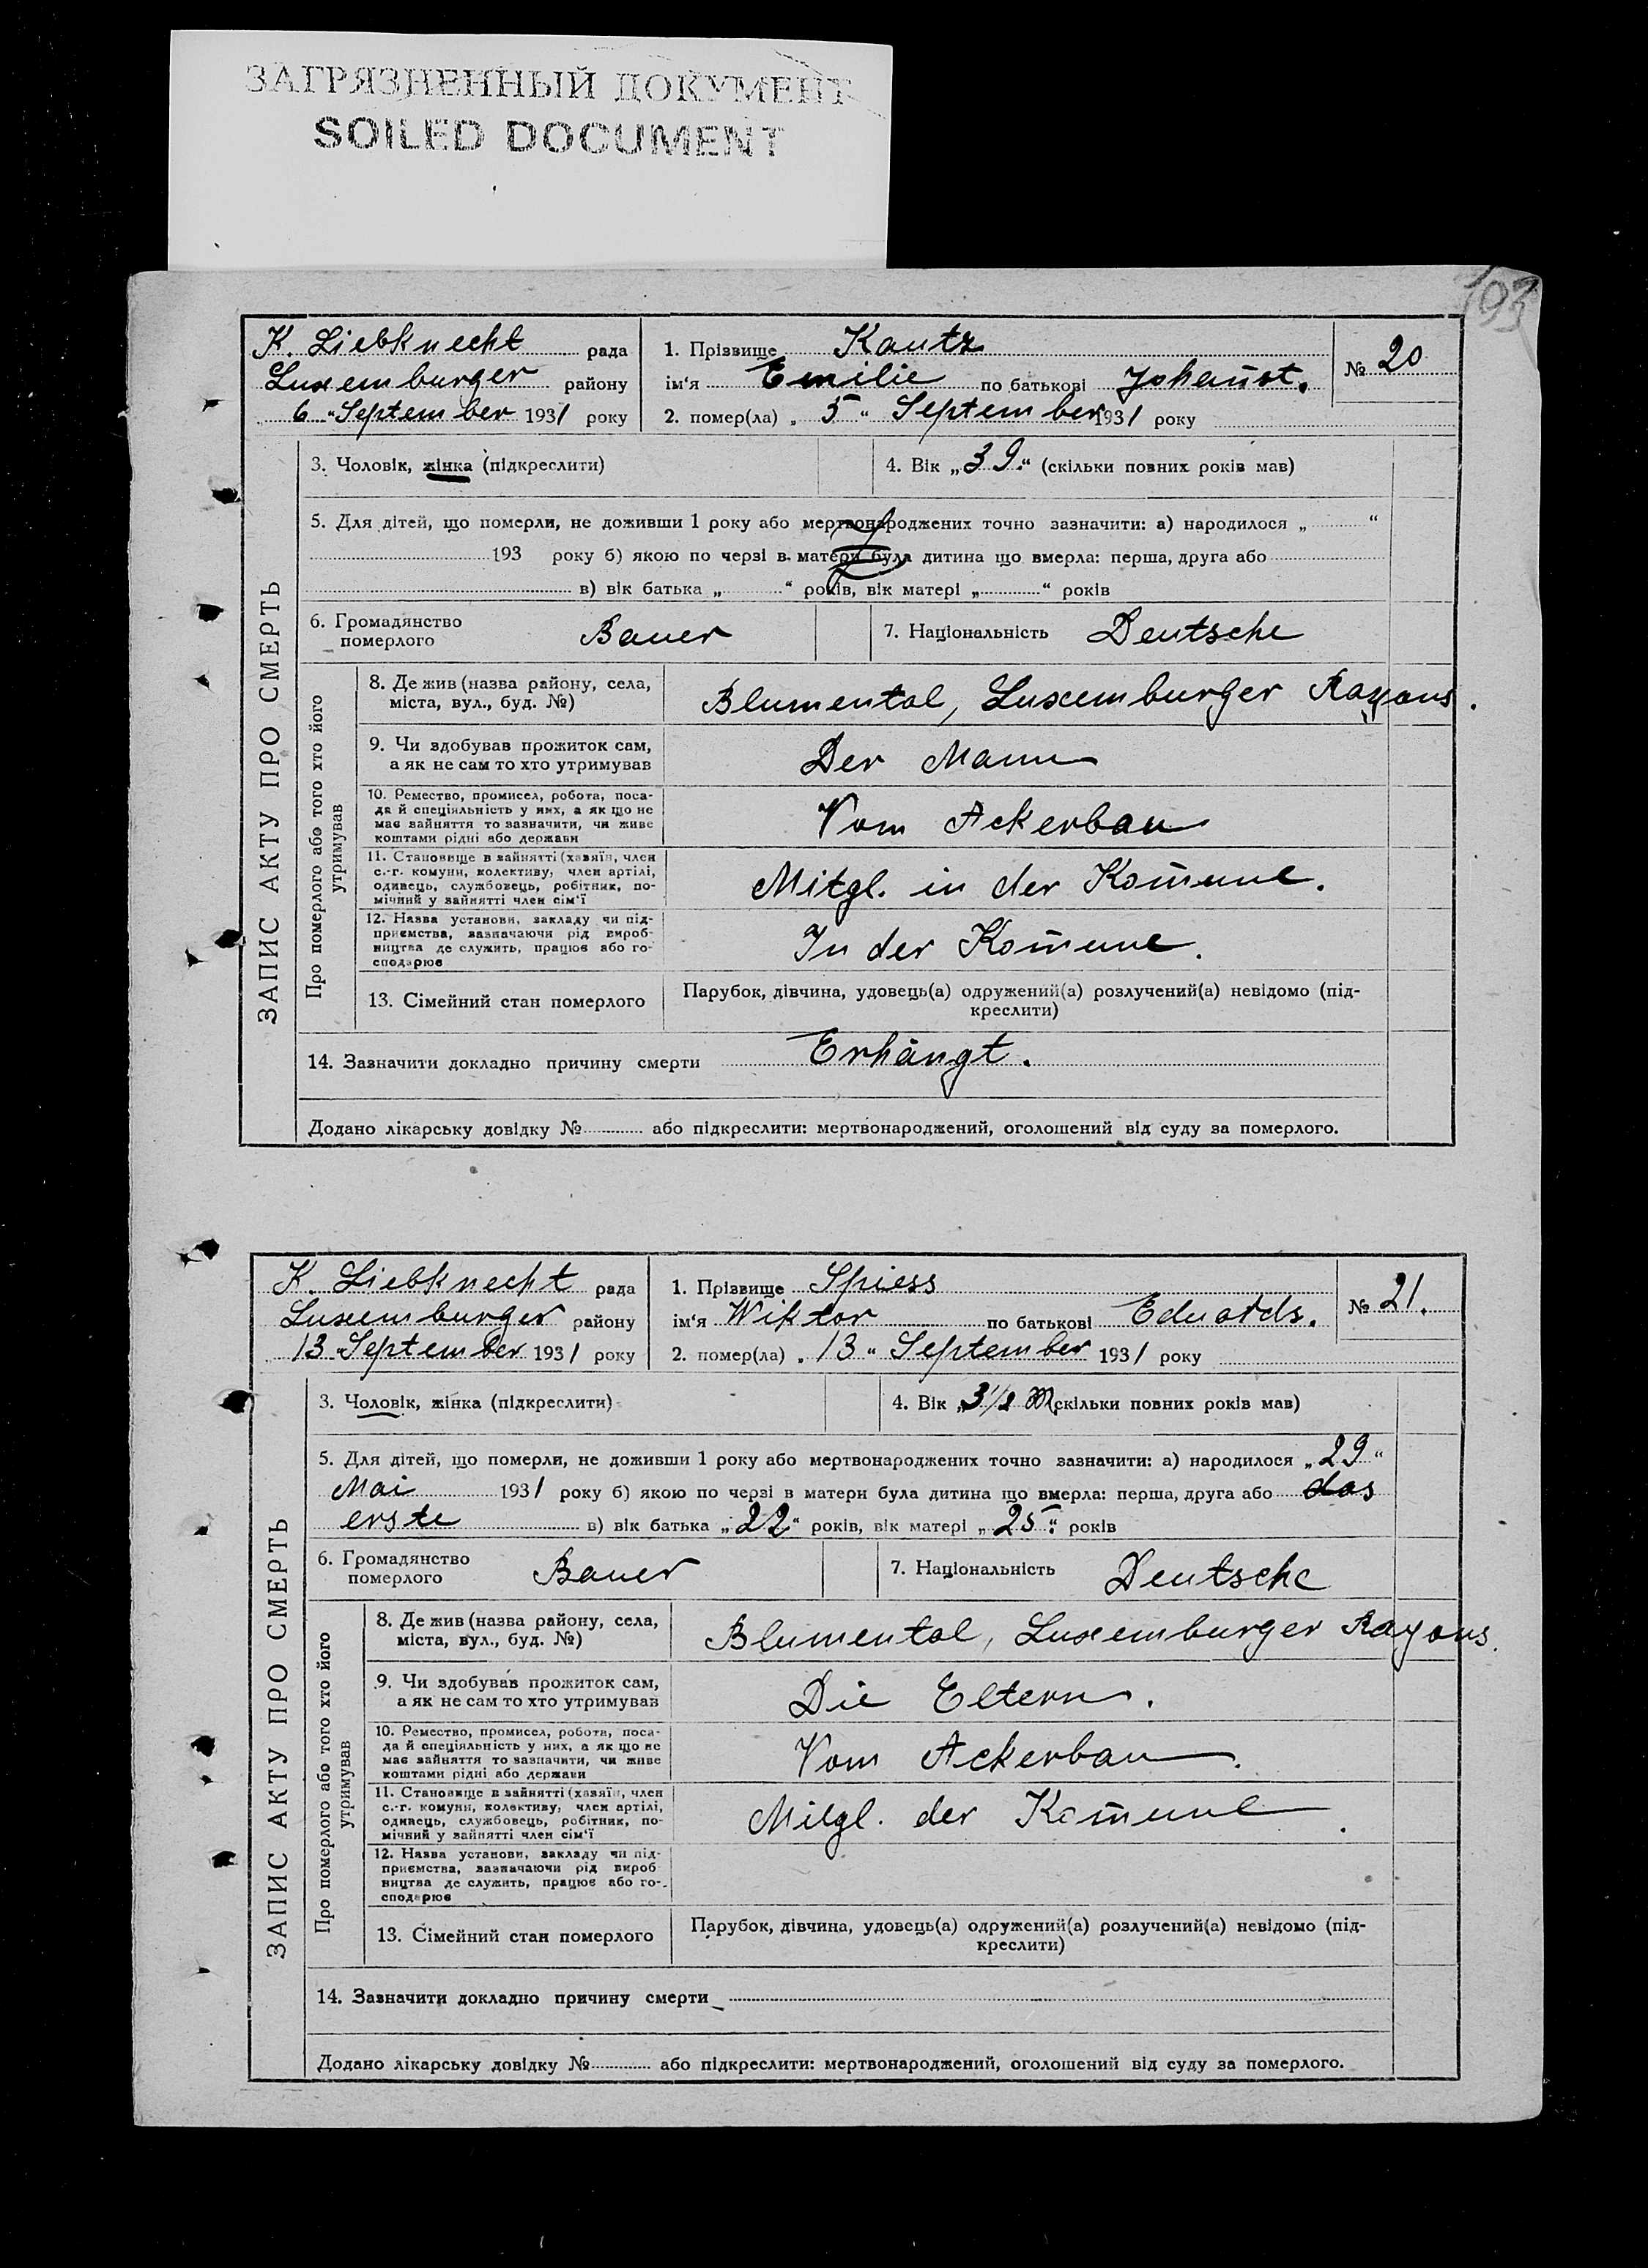 ЗАГРЯЗНЕННЫЙ ДОКУМЕНТ
SOILED DOCUMENT
193
ЗАПИС АКТУ ПРО СМЕРТЬ
K. Liebknecht рада
Luxemburger району
6 " September 1931 року
1. Прізвище Kautz
ім'я Emilie по батькові Johañot.
2. помер(ла) „ 5 " September 1931 року
№ 20
3. Чоловік, жінка (підкреслити)
4. Вік „39." (скільки повних років мав)
5. Для дітей, що померли, не доживши 1 року або мертвонароджених точно зазначити: а) народилося „ "
193 року б) якою по черзі в матери була дитина що вмерла: перша, друга або
в) вік батька „ " років, вік матері „ " років
6. Громадянство померлого Bauer
7. Національність Deutsche
Про померлого або того хто його утримував
8. Де жив (назва району, села,
міста, вул., буд. №)
Blumental, Luxemburger Rayons.
9. Чи здобував прожиток сам,
а як не сам то хто утримував
Der Mann
10. Ремество, промисел, робота, поса-
да й спеціяльність у них, а як що не
має зайняття то зазначити, чи живе
коштами рідні або держави
Vom Ackerbau
11. Становище в зайнятті (хазяїн, член
с.-г. комуни, колективу, член артілі,
одинець, службовець, робітник, по-
мічний у зайнятті член сім'ї
Mitgl. in der Kom̄une.
12. Назва установи, закладу чи під-
приємства, зазначаючи рід вироб-
ництва де служить, працює або го-
сподарює
In der Kom̄une.
13. Сімейний стан померлого
Парубок, дівчина, удовець(а) одружений(а) розлучений(а) невідомо (під-
креслити)
14. Зазначити докладно причину смерти Erhängt.
Додано лікарську довідку № або підкреслити: мертвонароджений, оголошений від суду за померлого.
ЗАПИС АКТУ ПРО СМЕРТЬ
K. Liebknecht рада
Luxemburger району
13 September 1931 року
1. Прізвище Spiess
ім'я Wiktor по батькові Eduards.
2. помер(ла) „ 13 " September 1931 року
№ 21.
3. Чоловік, жінка (підкреслити)
4. Вік „3 1/2 M. скільки повних років мав)
5. Для дітей, що померли, не доживши 1 року або мертвонароджених точно зазначити: а) народилося „29"
Mai 1931 року б) якою по черзі в матери була дитина що вмерла: перша, друга або das
erste в) вік батька „22" років, вік матері „25" років
6. Громадянство померлого Bauer
7. Національність Deutsche
Про померлого або того хто його утримував
8. Де жив (назва району, села,
міста, вул., буд. №)
Blumental, Luxemburger Rayons.
9. Чи здобував прожиток сам,
а як не сам то хто утримував
Die Eltern.
10. Ремество, промисел, робота, поса-
да й спеціяльність у них, а як що не
має зайняття то зазначити, чи живе
коштами рідні або держави
Vom Ackerbau.
11. Становище в зайнятті (хазяїн, член
с.-г. комуни, колективу, член артілі,
одинець, службовець, робітник, по-
мічний у зайнятті член сім'ї
Mitgl. der Kom̄une.
12. Назва установи, закладу чи під-
приємства, зазначаючи рід вироб-
ництва де служить, працює або го-
сподарює
13. Сімейний стан померлого
Парубок, дівчина, удовець(а) одружений(а) розлучений(а) невідомо (під-
креслити)
14. Зазначити докладно причину смерти
Додано лікарську довідку № або підкреслити: мертвонароджений, оголошений від суду за померлого.